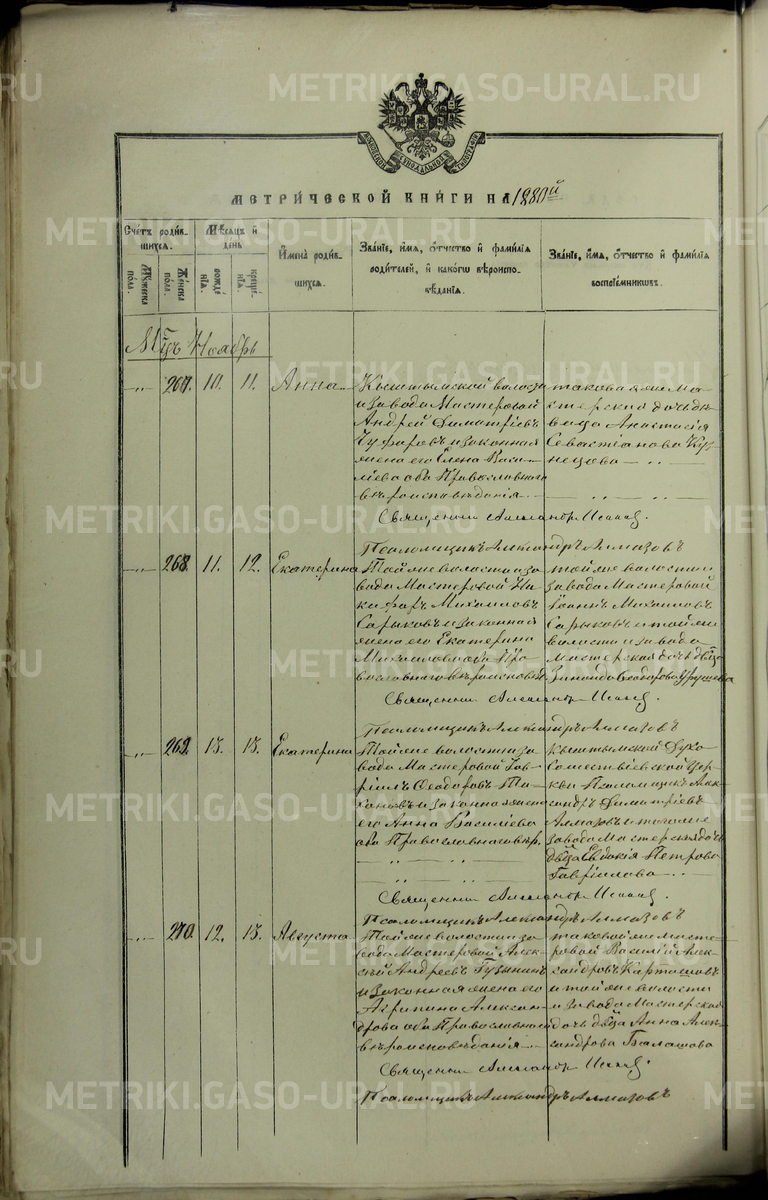 METRIKI.GASO-URAL.RU
МЕТРИ́ЧЕСКОЙ КНИ́ГИ НА 1880й
Сче́тъ роди́в-
шихся.
Мѣ́сяцъ и҆
день
И҆мена̀ роди́в-
шихся.
Зва́нїе, и҆́мѧ, ѻ҆́тчество и҆ фами́лїѧ
роди́телей, и҆ како́гѡ вѣроиспо-
вѣ́данїѧ.
Зва́нїе, и҆́мѧ, ѻ҆́тчество и҆ фами́лїѧ
воспрїе́мникѡвъ.
Мꙋ́жеска
по́ла.
Же́нска
по́ла.
рожде́
нїѧ.
креще́
нїѧ.
Мцъ Ноябрь
267. 10. 11. Анна
Кыштымской волости
и завода Мастеровой
Андрей Димитріевъ
и законная
жена его Елена Васи-
ліева оба Православнаго
вѣроисповѣданія
таковая же Ма-
стерская дочь дѣ-
вица Анастасія
Севастіанова Куз-
нецова
Священник Александр
Псаломщикъ Александръ Алмазовъ
268. 11. 12. Екатерина
Той же волости и за-
вода Мастеровой Ни-
кифоръ Михаиловъ
Сарыковъ и законная
жена его Екатерина
Михаилова оба Пра-
вославнаго вѣроисповѣд.
той же волости и
завода Мастеровой
Іоаннъ Михаиловъ
Сарыковъ и той же
волости и завода
Мастерская дочь дѣвца
Зинаида Ѳеодорова
Священник Александр
Псаломщикъ Александръ Алмазовъ
269. 13. 13. Екатерина
Той же волости и за-
вода Мастеровой Гав-
ріилъ Ѳеодоровъ
и законная жена
его Анна Василіева
оба Православнаго вѣр.
Кыштымской Духо-
Сошествіевской Цер-
кви Псаломщикъ Алек-
сандръ Димитріевъ
Алмазовъ и того же
завода Мастерская доч
дѣвца Евдокія Петрова
Гавріилова
Священник Александр
Псаломщикъ Александръ Алмазовъ
270. 12. 13. Августа
Той же волости и за-
вода Мастеровой Алек-
сѣй Андреевъ
и законная жена его
Агрипина Алексан-
дрова оба Православнаго
вѣроисповѣданія
таковой же масте-
ровой Василій Алек-
сандровъ Карташовъ
и той же волости
и завода Мастерская
дочь дѣвца Анна Алек-
сандрова Балашова
Священник Александр
Псаломщикъ Александръ Алмазовъ